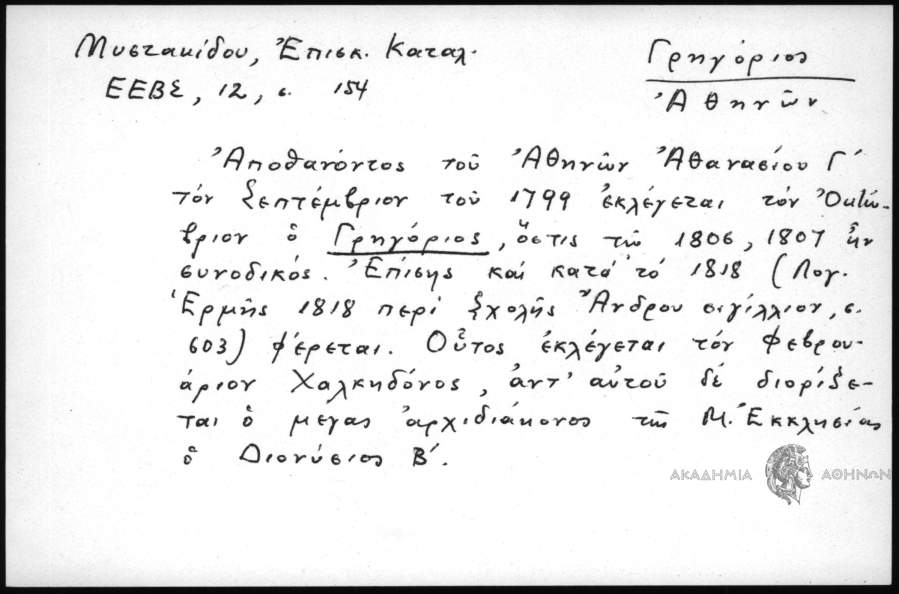 Μυστακίδου, Ἐπισκ. Καταλ.
ΕΕΒΣ, 12, σ. 154
Γρηγόριος
Ἀθηνῶν
Ἀποθανόντος τοῦ Ἀθηνῶν Ἀθανασίου Γ΄
τόν Σεπτέμβριον τοῦ 1799 ἐκλέγεται τόν Ὀκτώ-
βριον ὁ Γρηγόριος, ὅστις τῷ 1806, 1807 ἦν
συνοδικός. Ἐπίσης καί κατά τό 1818 (Λογ.
Ἑρμῆς 1818 περί Σχολῆς Ἄνδρου σιγίλλιον, σ.
603) φέρεται. Οὗτος ἐκλέγεται τόν Φεβρου-
άριον Χαλκηδόνος, ἀντ' αὐτοῦ δέ διορίζε-
ται ὁ μέγας ἀρχιδιάκονος τῆς Μ. Ἐκκλησίας
ὁ Διονύσιος Β΄.
ΑΚΑΔΗΜΙΑ ΑΘΗΝΩΝ